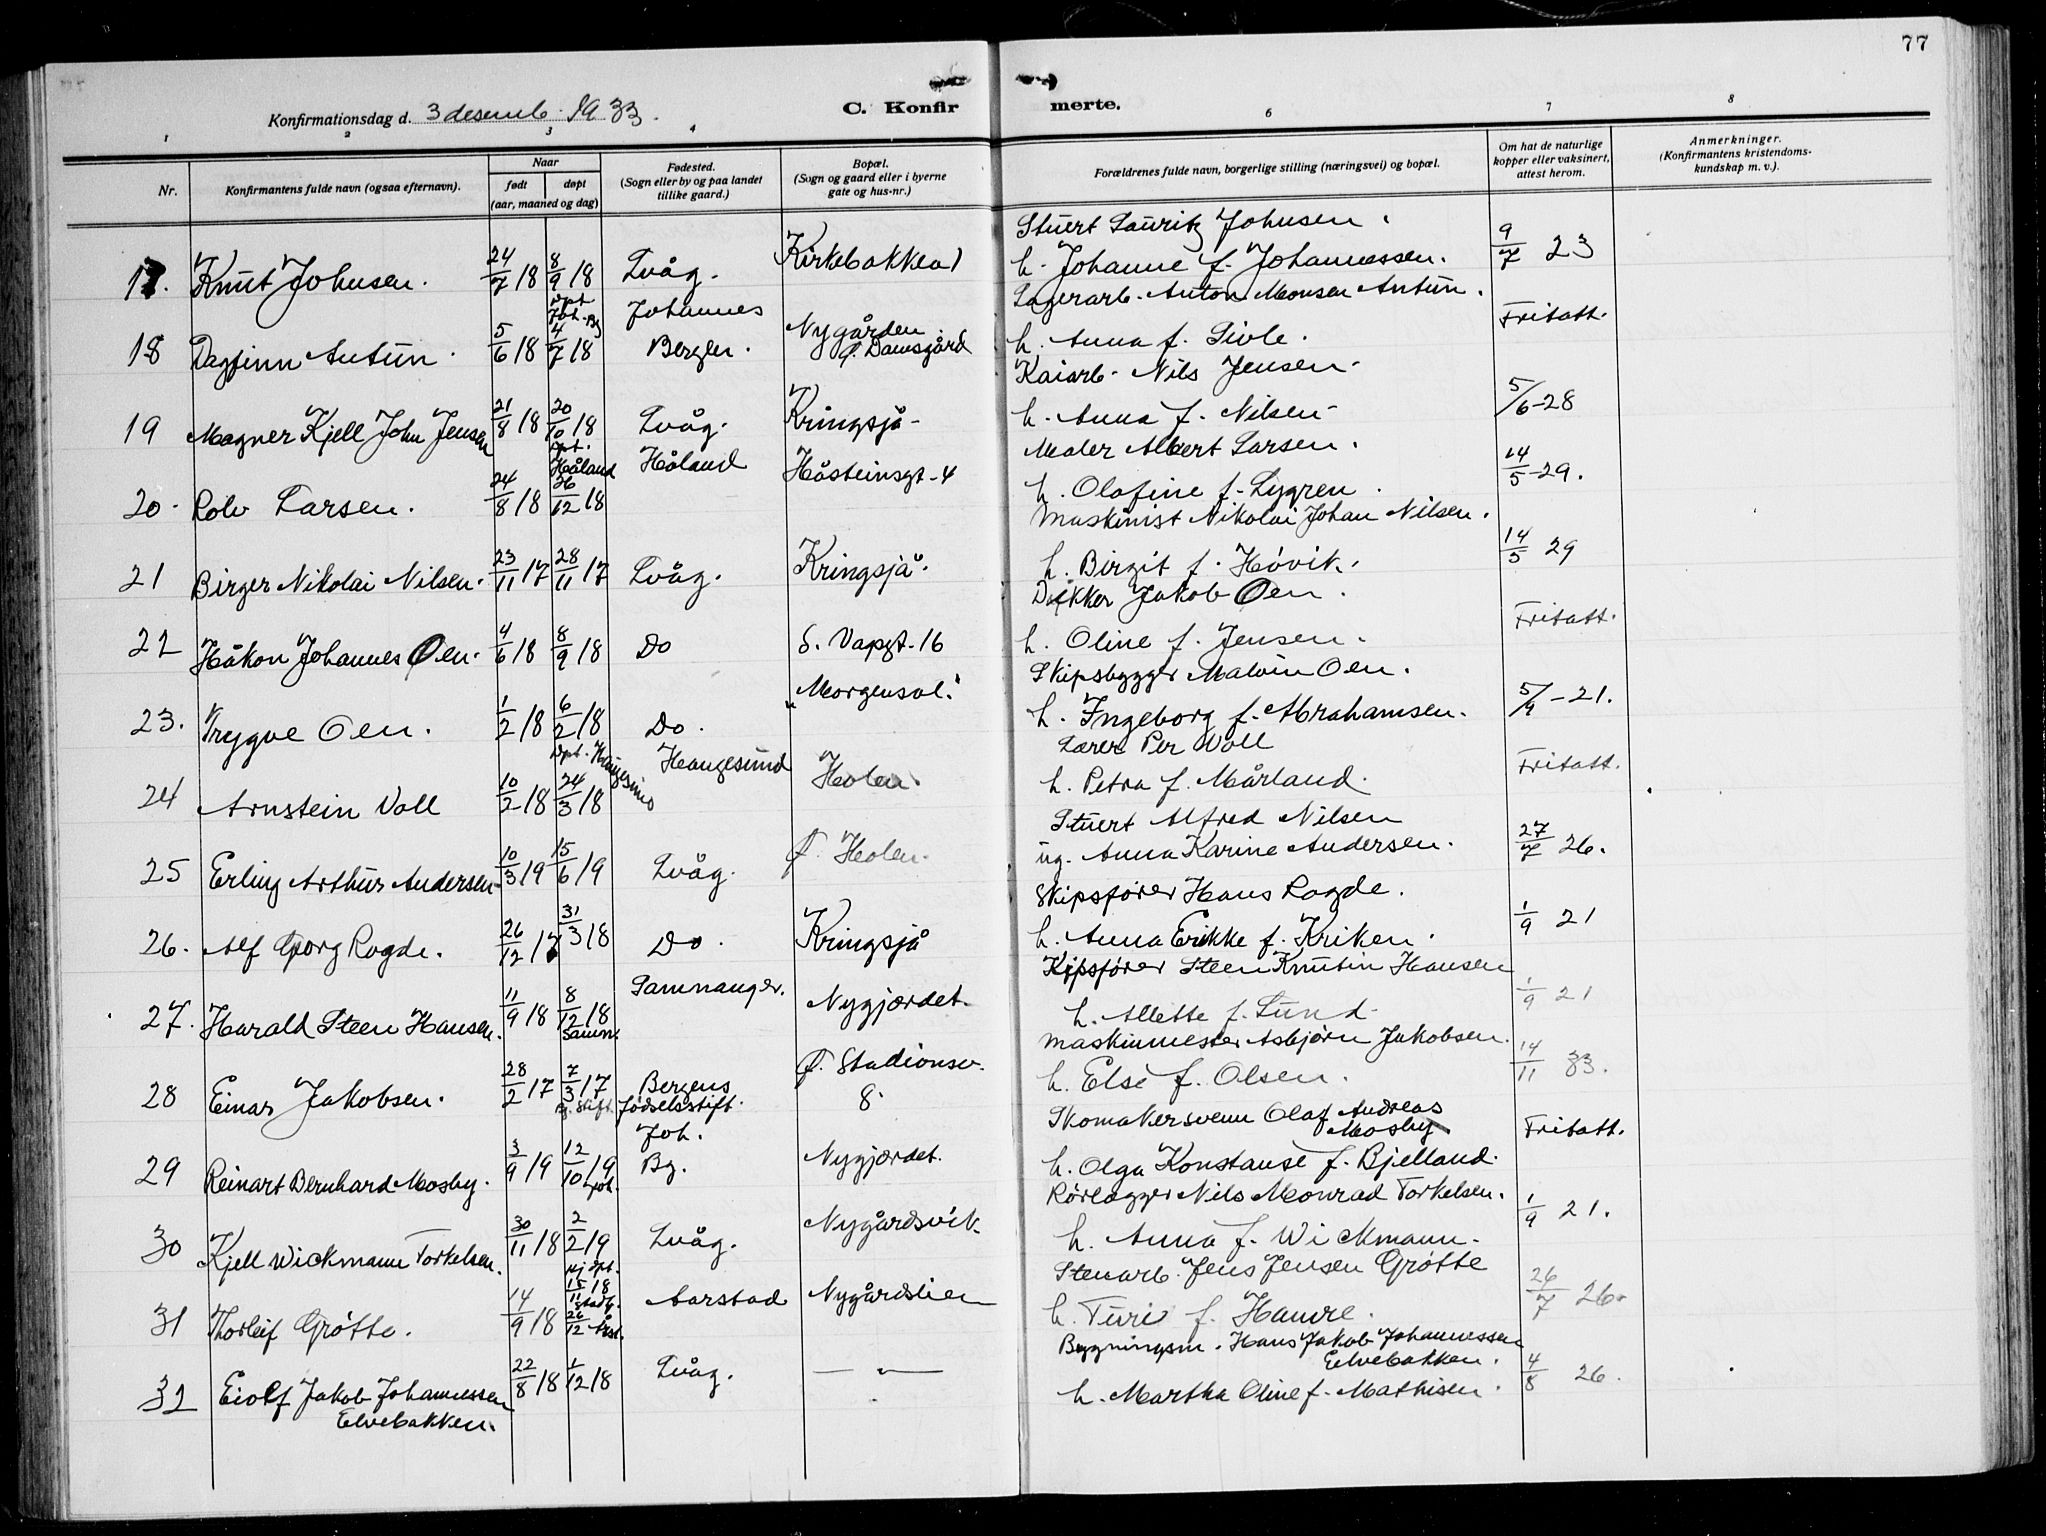 77
Konfirmationsdag d. 3 desemb. 1933.
C. Konfir merte.
1 2 3 4 6 7 8
Nr.
Konfirmantens fulde navn (ogsaa efternavn).
Naar
født døpt
(aar, maaned og dag)
Fødested.
(Sogn eller by og paa landet
tillike gaard.)
Bopæl.
(Sogn og gaard eller i byerne
gate og hus-nr.)
Forældrenes fulde navn, borgerlige stilling (næringsvei) og bopæl.
Om hat de naturlige
kopper eller vaksinert,
attest herom.
Anmerkninger.
(Konfirmantens kristendoms-
kundskap m. v.).
17. Knut Johnsen. 24/7 18 8/9 18 Lvåg. Kirkebakken 1
Stuert Lauritz Johnsen.
h. Johanne f. Johannessen. 9/7 23
18 Dagfinn Antun. 5/6 18 døpt Joh. Bg 4/7 18 Johannes Bergen. Nygården Ø. Damsgård
Lagerarb. Anton Monsen Antun.
h. Anna f. Sivle. Fritatt.
19 Magner Kjell John Jensen 21/8 18 20/10 18 Lvåg. Kringsjå
Kaiarb. Nils Jensen
h. Anna f. Nilsen 5/6-28
20. Rolv Larsen. 24/8 18 dpt. Håland 26/12 18 Håland Håsteinsgt. 4
Maler Albert Larsen.
h. Olafine f. Lygren. 14/5-29.
21 Birger Nikolai Nilsen. 23/11 17 28/11 17 Lvåg. Kringsjå.
Maskinist Nikolai Johan Nilsen.
h. Birgit f. Høvik. 14/5 29
22 Håkon Johannes Oen. 4/6 18 8/9 18 Do S. Vapgt. 16
Dekker Jakob Oen.
h. Oline f. Jensen. Fritatt.
23. Trygve Oen. 1/2 18 6/2 18 Do. "Morgensol."
Skipsbygger Malvin Oen.
h. Ingeborg f. Abrahamsen. 5/4-21.
24 Arnstein Voll 10/2 18 Dpt. Haugesund 24/3 18 Haugesund Holen.
Lærer Per Voll
h. Petra f. Mårland. Fritatt.
25 Erling Arthur Andersen 10/3 19 15/6 19 Lvåg. Ø. Holen.
Stuert Alfred Nilsen
ug. Anna Karine Andersen. 27/7 26.
26. Alf Georg Rogde. 26/12 17 31/3 18 Do. Kringsjå
Skipsfører Hans Rogde.
h. Anna Erikke f. Kriken. 1/9 21
27. Harald Steen Hansen. 11/9 18 8/12 18 Samn. Samnanger. Nygjordet.
Skipsfører Steen Knutin Hansen
h. Allette f. Lund 1/9 21
28 Einar Jakobsen. 28/2 17 7/3 17 Bg. Stift. Bergens fødselsstift. Ø. Stadionsv. 8.
Maskinmester Asbjørn Jakobsen.
h. Else f. Olsen. 14/11 33.
29 Reinart Bernhard Mosby. 3/9 19 12/10 19 Joh. Joh. Bg. Nygjordet.
Skomakersvenn Olaf Andreas Mosby.
h. Olga Konstanse f. Bjelland. Fritatt.
30 Kjell Wickmann Torkelsen. 30/11 18 2/2 19 Lvåg. Nygårdsvik
Rørlegger Nils Monrad Torkelsen.
h. Anna f. Wickmann. 1/9 21.
31 Thorleif Grøtte. 14/9 18 hj. dpt. 15/11 18 stadf. 26/12 Årst. Aarstad Nygårdslien
Stenarb. Jens Jensen Grøtte
h. Turi f. Hamre. 26/7 26.
32 Eiolf Jakob Johannessen Elvebakken. 22/8 18 1/12 18 Lvåg. — " —
Bygningsm. Hans Jakob Johannessen Elvebakken.
h. Martha Oline f. Mathisen. 4/8 26.